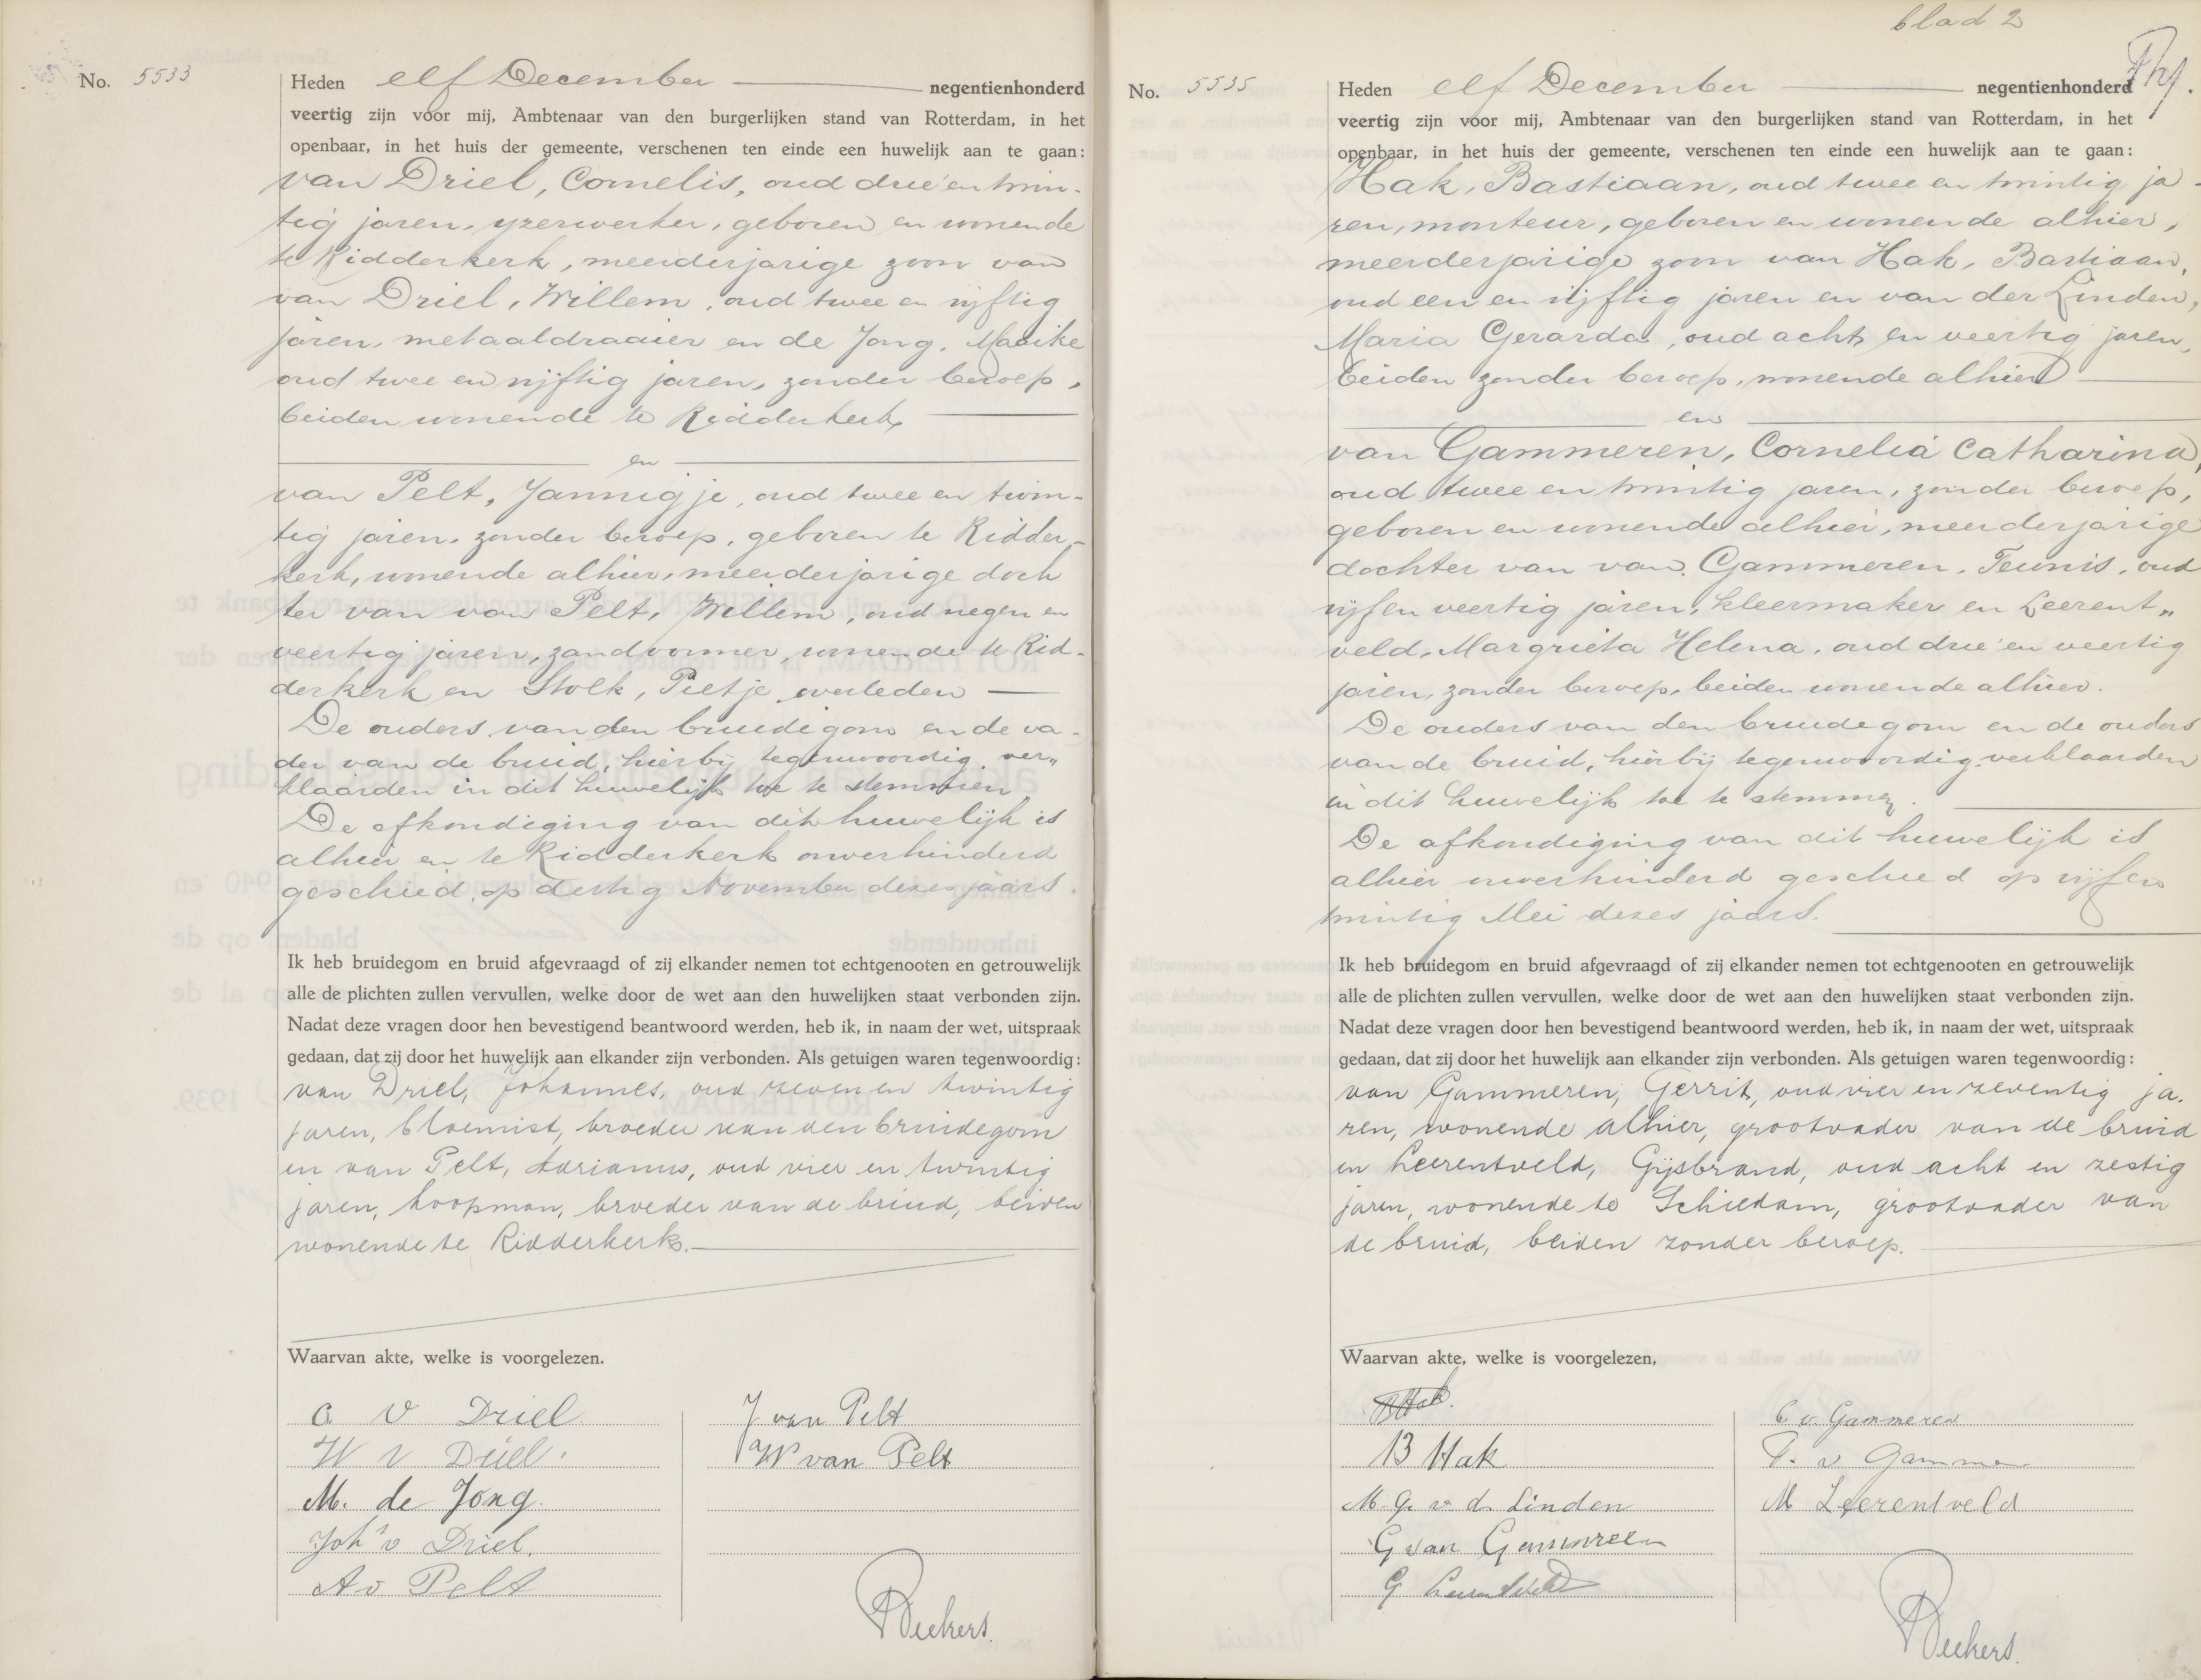 No. 5533
Heden elf December negentienhonderd
veertig zijn voor mij, Ambtenaar van den burgerlijken stand van Rotterdam, in het
openbaar, in het huis der gemeente, verschenen ten einde een huwelijk aan te gaan:
van Driel, Cornelis, oud drie en twin-
tig jaren, yzerwerker, geboren en wonende
te Ridderkerk, meerderjarige zoon van
van Driel, Willem, oud twee en vijftig
jaren, metaaldraaier en de Jong, Maaike
oud twee en vijftig jaren, zonder beroep,
beiden wonende te Ridderkerk
en
van Pelt, Jannigje, oud twee en twin-
tig jaren, zonder beroep, geboren te Ridder-
kerk, wonende alhier, meerderjarige doch
ter van van Pelt, Willem, oud negen en
veertig jaren, zandvormer, wonende te Rid-
derkerk en Stolk, Pietje, overleden
De ouders van den bruidigom en de va-
der van de bruid, hierbij tegenwoordig, ver„
klaarden in dit huwelijk toe te stemmen
De afkondiging van dit huwelijk is
alhier en te Ridderkerk onverhinderd
geschied op dertig November dezes jaars.
Ik heb bruidegom en bruid afgevraagd of zij elkander nemen tot echtgenooten en getrouwelijk
alle de plichten zullen vervullen, welke door de wet aan den huwelijken staat verbonden zijn.
Nadat deze vragen door hen bevestigend beantwoord werden, heb ik, in naam der wet, uitspraak
gedaan, dat zij door het huwelijk aan elkander zijn verbonden. Als getuigen waren tegenwoordig:
van Driel, Johannes, oud zeven en twintig
jaren, bloemist, broeder van den bruidegom
en van Pelt, Adrianus, oud vier en twintig
jaren, koopman, broeder van de bruid, beiden
wonende te Ridderkerk.
Waarvan akte, welke is voorgelezen.
C v Driel
W v Driel.
M. de Jong.
Joh<sup>s</sup> v Driel.
A v Pelt
J van Pelt
W van Pelt
blad 2
No. 5535
Heden elf December negentienhonderd
veertig zijn voor mij, Ambtenaar van den burgerlijken stand van Rotterdam, in het
openbaar, in het huis der gemeente, verschenen ten einde een huwelijk aan te gaan:
Hak, Bastiaan, oud twee en twintig ja-
ren, monteur, geboren en wonende alhier,
meerderjarige zoon van Hak, Bastiaan,
oud een en vijftig jaren en van der Linden,
Maria Gerarda, oud acht en veertig jaren,
beiden zonder beroep, wonende alhier
en
van Gammeren, Cornelia Catharina,
oud twee en twintig jaren, zonder beroep,
geboren en wonende alhier, meerderjarige
dochter van van Gammeren, Teunis, oud
vijf en veertig jaren, kleermaker en Leerent„
veld, Margrieta Helena, oud drie en veertig
jaren, zonder beroep, beiden wonende alhier.
De ouders van den bruidegom en de ouders
van de bruid, hierbij tegenwoordig verklaarden
in dit huwelijk toe te stemmen.
De afkondiging van dit huwelijk is
alhier onverhinderd geschied op vijf en
twintig Mei dezes jaars.
Ik heb bruidegom en bruid afgevraagd of zij elkander nemen tot echtgenooten en getrouwelijk
alle de plichten zullen vervullen, welke door de wet aan den huwelijken staat verbonden zijn.
Nadat deze vragen door hen bevestigend beantwoord werden, heb ik, in naam der wet, uitspraak
gedaan, dat zij door het huwelijk aan elkander zijn verbonden. Als getuigen waren tegenwoordig:
van Gammeren, Gerrit, oud vier en zeventig ja.
ren, wonende alhier, grootvader van de bruid
en Leerentveld, Gijsbrand, oud acht en zestig
jaren, wonende te Schiedam, grootvader van
de bruid, beiden zonder beroep.
Waarvan akte, welke is voorgelezen,
B Hak.
B Hak
M. G. v. d. Linden
G van Gammeren
G Leerentveld
C v. Gammeren
T. v Gammeren
M Leerentveld